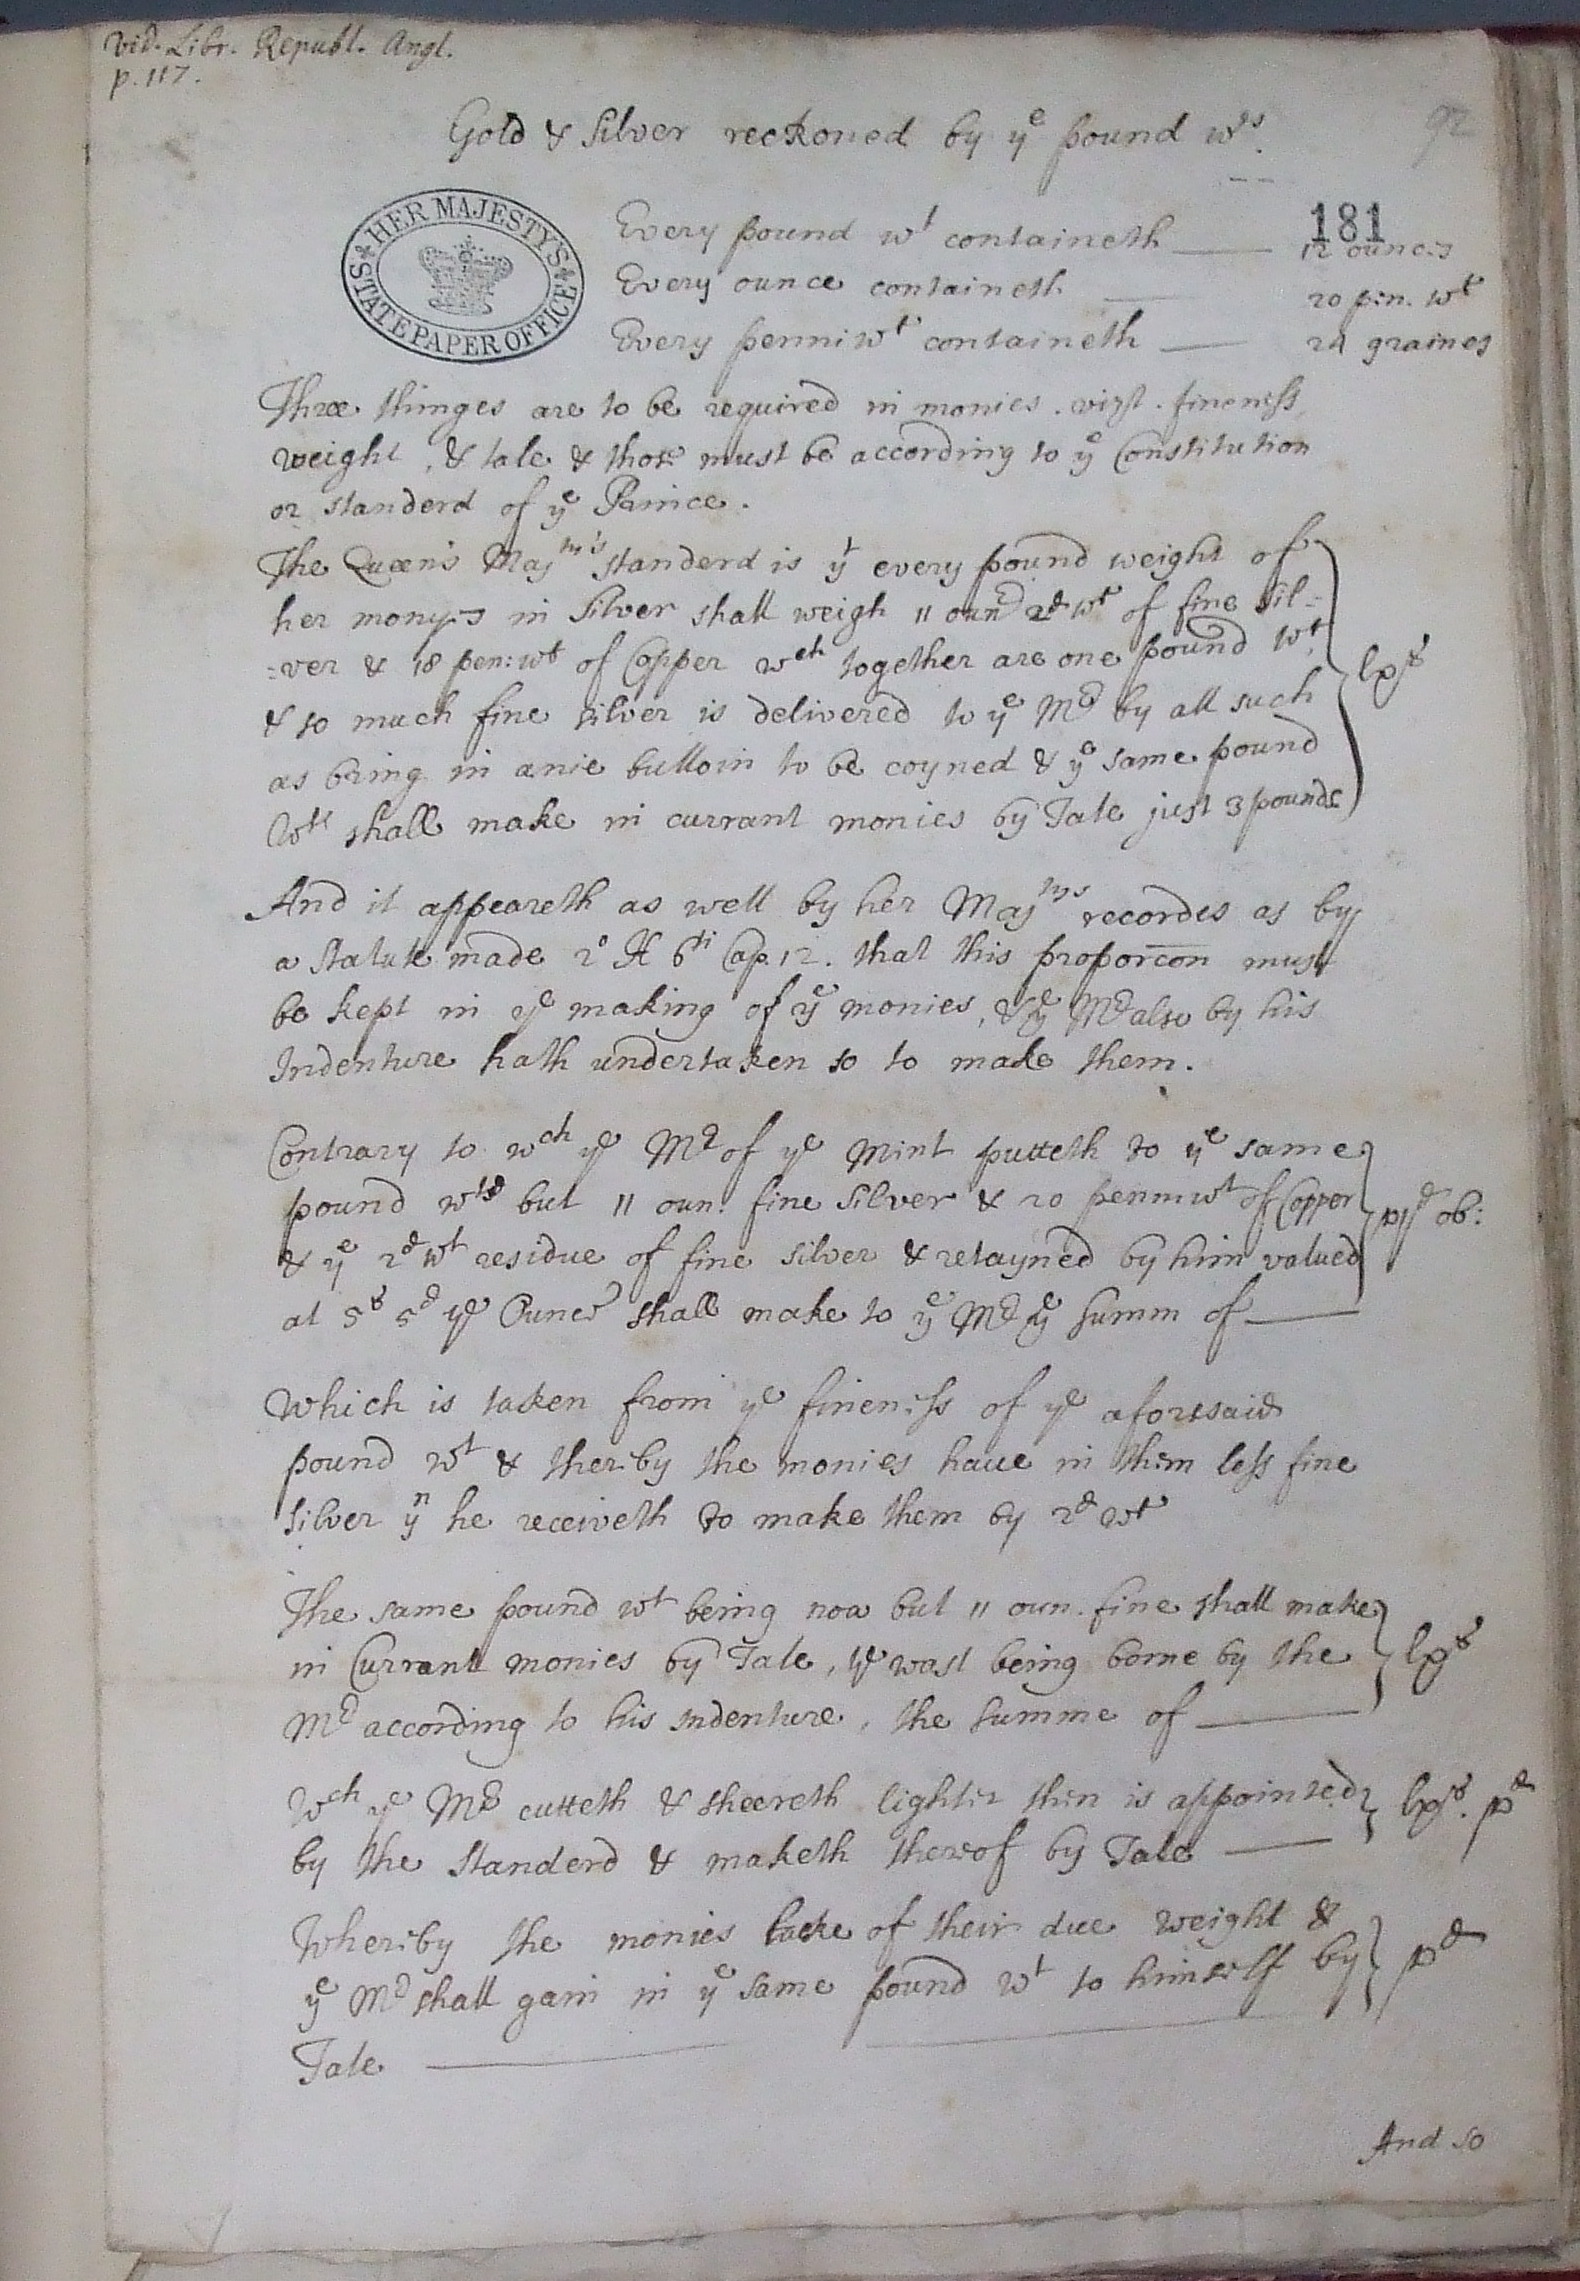 Vid. Libr. Republ. Angl.
p. 117.
92
Gold & Silver reckoned by yᵉ pound wᵗˢ.
HER MAJESTY'S STATE PAPER OFFICE
181
Every pound wᵗ containeth —— 12 ounces
Every ounce containeth —— 20 pen. wᵗ
Every penniwᵗ containeth —— 24 graines
Three thinges are to be required in monies. vizt. fineness,
weight, & tale & those must be according to yᵉ Constitution
or standerd of yᵉ Prince.
The Queen's Majᵗʸˢ standerd is yᵗ every pound weight of
her monyes in Silver shall weigh 11 oun 2ᵈ wᵗ of fine sil=
=ver & 18 pen: wᵗ of Copper wᶜʰ together are one pound wᵗ.
& so much fine silver is delivered to yᵉ Mʳ by all such
as bring in anie bulloin to be coyned & yᵉ same pound
Wᵗˢ shall make in currant monies by Tale just 3 pounds
lxˢ
And it appeareth as well by her Majᵗʸˢ recordes as by
a Statute made 2° H 6ᵗⁱ Cap. 12. that this proporcon must
be kept in yᵉ making of yᵉ monies, & yᵉ Mʳ also by his
Indenture hath undertaken so to make them.
Contrary to wᶜʰ yᵉ Mʳ of yᵉ Mint putteth to yᵉ same
pound wᵗˢ but 11 oun: fine Silver & 20 penniwᵗ of Copper
& yᵉ 2ᵈ wᵗ residue of fine silver & retayned by him valued
at 5ˢ 5ᵈ yᵉ Ounce shall make to yᵉ Mʳ yᵉ Summ of ——
ob:
Which is taken from yᵉ fineness of yᵉ aforesaid
pound wᵗ & thereby the monies haue in them less fine
Silver yⁿ he receiveth to make them by 2ᵈ wᵗ
The same pound wᵗ being now but 11 oun. fine shall make
in Currant monies by Tale, yᵉ wast being borne by the
Mʳ according to his indenture, the Summe of ——
lxˢ
Wᶜʰ yᵉ Mʳ cutteth & sheereth lighter then is appointed
by the Standerd & maketh thereof by Tale ——
lxˢ. xᵈ
Whereby the monies lacke of their due weight &
yᵉ Mʳ shall gain in yᵉ same pound wᵗ to himself by
Tale ——
xᵈ
And so